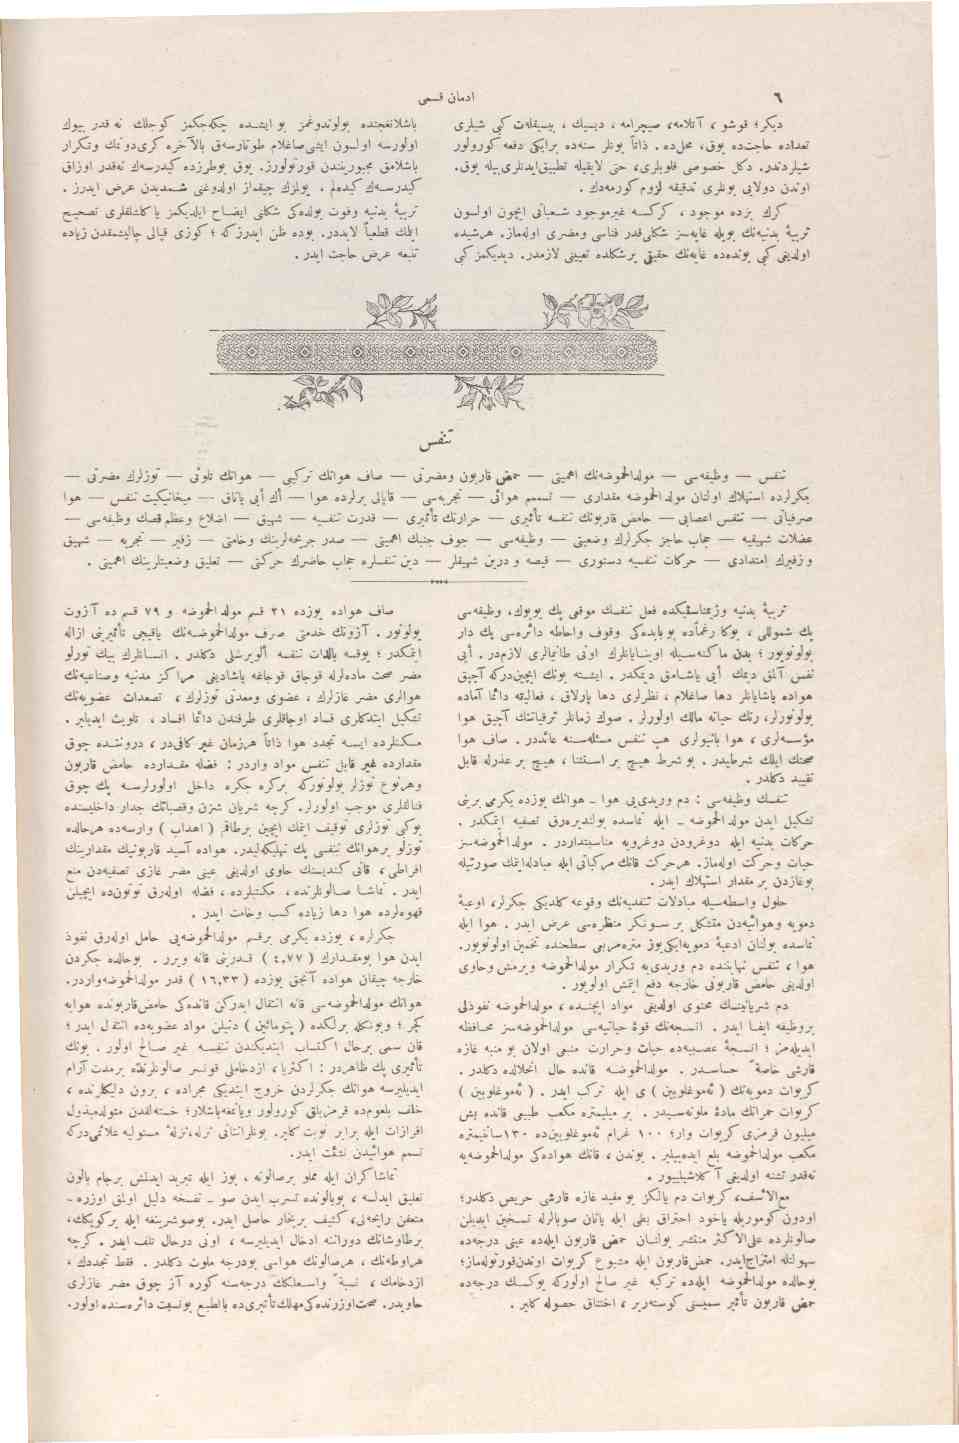 ٦
ادمان قسمی
ديكر؛ قوشو ، آتلامه، صيچرامه ، ديسك ، بيسيقلەت كبی شيلری
تعداده حاجت‌ده يوق، محل‌ده . ذاتاً بونلر سنه‌ده برايكی دفعه كورولور
شيلردندر. دكل خصوصی قلوبلری، حتی لايقيله تطبيق‌ايدنلری‌بيله يوق.
اوندن دولايی بونلری تدقيقه لزوم كورمه‌دك .
كرك بزده موجود ، كركسه غيرموجود شعباتی ايچون اولسون
تربيهٔ بدنيه‌نك بويله غايه‌سز شكلی‌قدر فناسی ومضری اوله‌ماز. هرشيده
اولديغی كبی بونده‌ده غايه‌نك حقيقی برشكلده تعيينی لازمدر. ديديكمز كبی
باشلانغيجنده بولوندوغمز بو ايشده چكه‌جكمز كوجلك نه قدر بيوك
اولورسه اولسون ايشی‌صاغلام طوتارسه‌ق بالآخره كری‌دونمك وتكرار
باشلامق مجبوريتندن قورتولورز. يوق بوطرزده كيدرسه‌ك نه‌قدر اوزاق
كيدرسه‌ك كيده‌لم ، يولمزك چيقماز اولدوغنی شمديدن عرض ايدرز .
تربيهٔ بدنيه وقوت بولده‌كی شكلنی ايضاح ايلديكمز ياكلشلقلری تصحيح
ايتمك قطعياً لابددر. بوده ظن ايدرزكه ؛ كوزی قپالی چاليشمقدن زياده
تتبعه عرض حاجت ايدر .
تنفس
تنفس — وظيفه‌سی — مولدالحموضه‌نك اهميتی — حمض قاربون ومضرتی — صاف هوانك تركيبی — هوانك تلوثی — توزلرك مضرتی —
جكرلرده استهلاك اولنان مولد الحموضه مقداری — تسمم هوائی — تجربه‌سی — قاپالی يرلرده هوا — اك أيی ياتاق — ميخانيكيت تنفس — هوا
صرفياتی — تنفس اعصابی — حامض قاربونك تنفسه تأثيری — حرارتك تأثيری — قدرت تنفسيه — شهيق — اضلاع وعظم قصك وظيفه‌سی —
عضلات شهيقيه — حجاب حاجز جكرلرك وضعيتی — وظيفه‌سی — جوف جنبك اهميتی — صدر جريحه‌لرينك وخامتی — زفير — تجربه — شهيق
و زفيرك امتدادی — حركات تنفسيه دستوری — قيصه و درين شهيقلر — دين تنفسلره حجاب حاضرك حركتی — تعليق وضعيتلرينك اهميتی .
تربيهٔ بدنيه وژيمناستيكده فعل تنفسك موقعی پك بويوك، وظيفه‌سی
پك شموللی ، بوكا رغماًده بو بابده‌كی وقوف واحاطه دائره‌سی پك دار
بولونويور ؛ بدن ماكنه‌سيله اويناياانلرك اونی طانيمالری لازم‌در . أيی
نفس آلمق ديمك أيی ياشامق ديمكدر . ايشته بونك ايچين‌دركه آچيق
هواده ياشايانلر دها صاغلام ، نظرلری دها پارلاق ، فعاليته دائما آماده
بولونورلر، رنك حياته مالك اولورلر . صوك زمانلر ترقياتنك آچيق هوا
مؤسسه‌لری ، هوا بانيولری هپ تنفس مسئله‌سنه عائددر . صاف هوا
صحتك ايلك شرطيدر . بو شرط هيچ بر استثنا ، هيچ بر عذرله قابل
تقييد دكلدر .
تنفسك وظيفه‌سی : دم وريدی‌يی هوا ـ هوانك يوزده يكرمی برينی
تشكيل ايدن مولد الحموضه ـ ايله تماسده بولنديره‌رق تصفيه ايتمكدر .
حركات بدنيه ايله دوغرودن دوغرويه مناسبتداردر . مولدالحموضه‌سز
حيات وحركت اوله‌ماز. هرحركت قانك مركباتی ايله مبادله‌ايتمك صورتيله
بوغازدن بر مقدار استهلاك ايدر .
حلول واسطه‌سيله مبادلات تنفسيه‌نك وقوعه كلديكی جكرلر، اوعيهٔ
دمويه وهوائيه‌دن متشكل بر سونكر منظره‌سی عرض ايدر . هوا ايله
تماسده بولنان اوعيهٔ دمويه‌ايكی‌يوز متره‌مربعی سطحنده تخمين اولونويور.
هوا ، تنفس نهايتنده دم وريدی‌يه تكرار مولدالحموضه ويرمش وحاوی
اولديغی حامض قاربونی خارجه دفع ايتمش اولويور .
دم شريانينك محتوی اولديغی مواد ايچنده ، مولدالحموضه نفوذلی
بروظيفه ايفا ايدر . انسجه‌نك قوهٔ حياتيه‌سی مولدالحموضه‌سز محافظه
ايديله‌مز ؛ انسجهٔ عصبيه‌ده حيات وحرارت منبعی اولان بو منبه غازه
قارشی خاصةً حساسدر . مولدالحموضه قانده حال انحلالده دكلدر .
كريوات دمويه‌نك ( ئه‌موغلوبين ) ی ايله تركب ايدر . ( ئه‌موغلوبين )
كريوات حمرانك مادهٔ ملونه‌سيدر . بر ميليمتره مكعب طبيعی قانده بش
ميليون قرمزی كريوات وار؛ ١٠٠ غرام ئه‌موغلوبين‌ده ١٣٠سانتيمتره
مكعب مولدالحموضه بلع ايده‌بيلير . بوندن ، قانك هواده‌كی مولدالحموضه‌يه
نه‌قدر تشنه اولديغی آكلاشيلييور .
مع‌الاسف، كريوات دم يالكز بو مفيد غازه قارشی حريص دكلدر؛
اودون كوموريله ياخود احتراق بطی ايله يانان صوبالرله تسخين ايديلن
صالونلرده علی‌الاكثر منتشر بولنان حمض قاربون ايله‌ده عينی درجه‌ده
سهولتله امتزاج‌ايدر. حمض‌قاربون ايله مشبوع كريوات اوندن‌قورتوله‌ماز؛
بوحالده مولدالحموضه ايله‌ده تركبه غير صالح اولوركه يوكسك درجه‌ده
حمض قاربون تأثير سميسنی كوسته‌رير ، اختناق حصوله كلير .
صاف هواده يوزده ٢١ قسم مولد الحموضه و ٧٩ قسم ده آزوت
بولونور . آزوتك خدمتی صرف مولدالحموضه‌نك ياقيجی تأثيرينی ازاله
ايتمكدر ؛ يوقسه بالذات تنفسه ألويرشلی دكلدر . انسانلرك بيك تورلو
مضر صحت ماده‌لرله قوجاق قوجاغه ياشاديغی مراكز مدنيه وصناعيه‌نك
هوالری مضر غازلرك ، عضوی ومعدنی توزلرك ، تصعدات عضويه‌نك
تشكيل ايتدكلری فساد اوجاقلری طرفندن دائما افساد ، تلويث ايديلير .
مسكنلرده ايسه تجدد هوا ذاتاً هرزمان غير كافی‌در ، دروننده چوق
مقدارده غير قابل تنفس مواد واردر : فضله مقدارده حامض قاربون
وهرنوع توزلر بولونوركه بركره جكره داخل اولورلرسه پك چوق
فنالقلری موجب اولورلر. كرچه شريان شزن وقصباتك جدار داخليسنده
بوكبی توزلری توقيف ايتمك ايچين برطاقم ( اهداب ) وارسه‌ده هرحالده
توزلو برهوانك تنفسی پك تهلكه‌ليدر. هواده آسيد قاربونيك مقدارينك
افراطی ، قانی كنديسنك حاوی اولديغی عينی مضر غازی تصفيه‌دن منع
ايدر . تماشا صالونلرنده ، مكتبلرده ، فضله اوله‌رق توتون‌ده ايچيلن
قهوه‌لرده هوا دها زياده كسب وخامت ايدر .
جكرلره ، يوزده يكرمی برقسم مولدالحموضه‌يی حامل اوله‌رق نفوذ
ايدن هوا بومقدارك ( ٤,٧٧ ) قدرينی قانه ويرر . بوحالده جكردن
خارجه چيقان هواده آنجق يوزده ( ١٦,٣٣ ) قدر مولدالحموضه‌واردر.
هوانك مولدالحموضه‌سی قانه انتقال ايدركن قانده‌كی حامض‌قاربونده هوايه
كچر ؛ وبونكله برلكده ( پتومائين ) دنيلن مواد عضويه‌ده انتقال ايدر ؛
قان سمی برحال اكتساب ايتديكندن تنفسه غير صالح اولور . بونك
تأثيری پك ظاهردر : اكثريا ، ازدحاملی قونسر صالونلرنده برمدت آرام
ايديليرسه هوانك جكرلردن خروج ايتديكی مجراده ، برون دليكلرنده ،
خلف بلعوم‌ده قرمزيلق كورولور ويانمغه‌باشلار؛ خسته‌لقدن متولدمبذول
افرازات ايله برابر نوبت كلير. بونلرانتانی نزله،نزلهٔ مستوليه علائمی‌دركه
تسمم هوائيدن نشئت ايدر.
تماشاكران ايله مملو برصالونه . بوز ايله تبريد ايدلمش برجام بالون
تعليق ايدلسه ، بوبالونده تسرب ايدن صو ـ نفحه دليل اولمق اوزره ـ
متعفن رايحه‌لی، كثيف بربخار حاصل ايدر. بوصوشرينغه ايله بركوپكك،
برطاوشانك دوراننه ادخال ايديليرسه ، اونی درحال تلف ايدر. كرچه
هراوطه‌نك ، هرصالونك هواسی بودرجه ملوث دكلدر . فقط تجددك ،
ازدحامك ، نسبةً واسعلكك درجه‌سنه كوره آز چوق مضر غازلری
حاويدر. صحت‌اوزرنده‌كی‌مهلك‌تأثيری‌ده بالطبع بونسبت دائره‌سنده اولور.